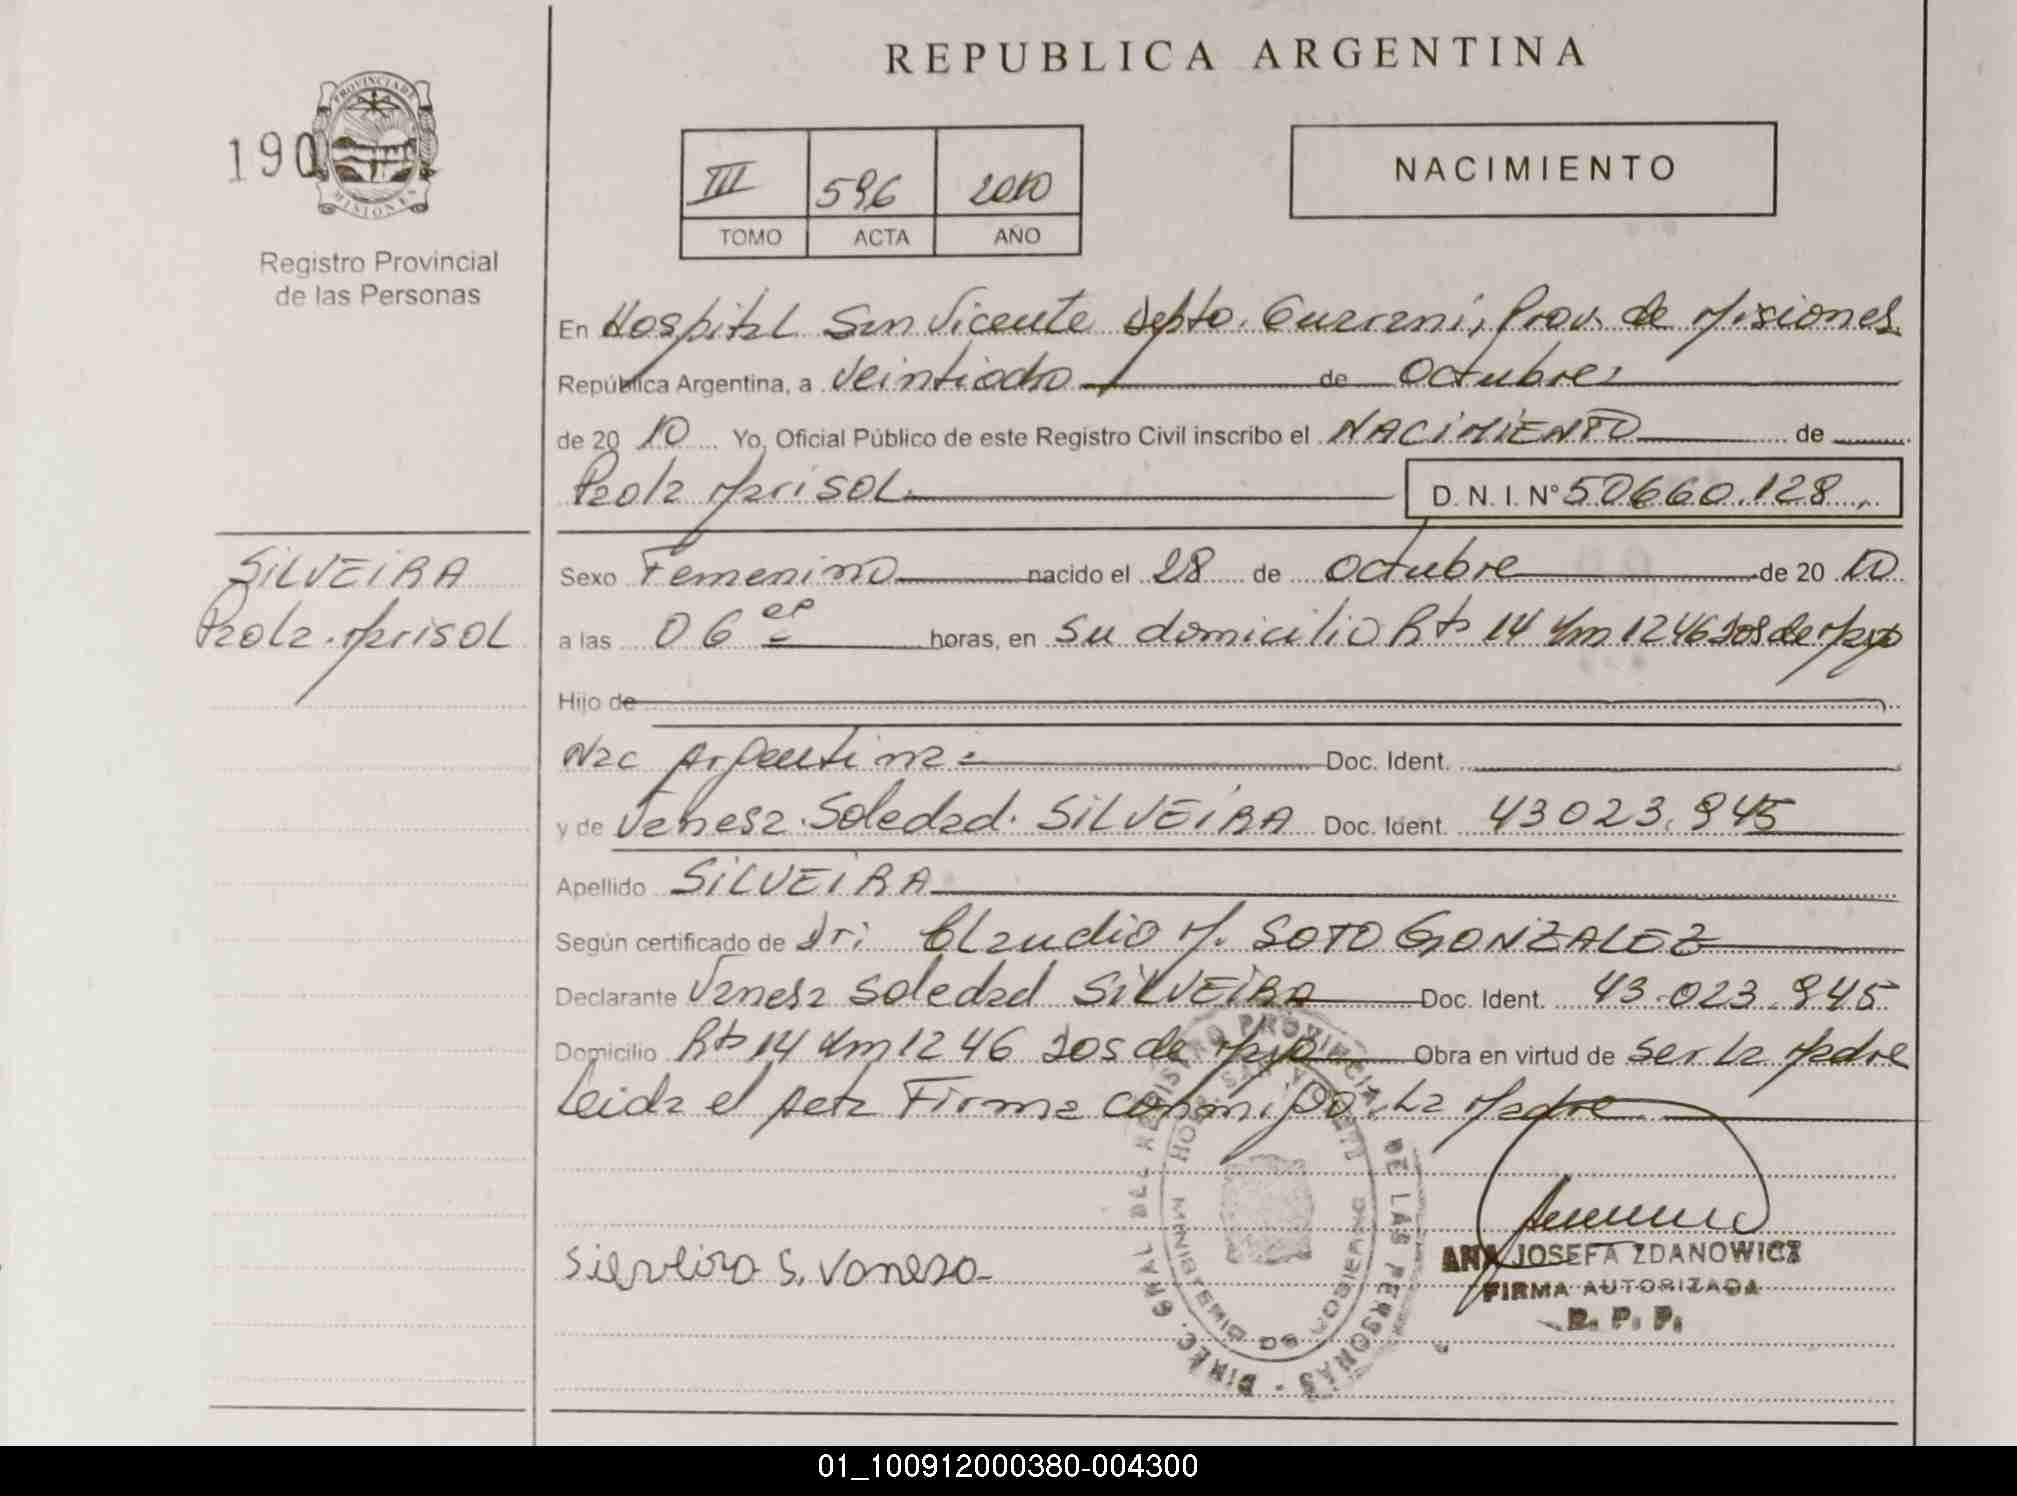 REPUBLICA ARGENTINA
190
PROVINCIA DE
MISIONES
Registro Provincial
de las Personas
III 596 2010
TOMO ACTA AÑO
NACIMIENTO
En Hospital San Vicente Depto. Guarani, Prov. de Misiones
República Argentina, a Veintiocho de Octubre
de 2010 Yo, Oficial Público de este Registro Civil inscribo el NACIMIENTO de
Paola Marisol D. N. I. N° 50660.128
SILVEIRA
Paola Marisol
Sexo Femenino nacido el 28 de Octubre de 2010
a las 06 horas, en su domicilio Rta 14 Km 1246 Dos de Mayo
Hijo de
Nac Argentina Doc. Ident.
y de Vanesa Soledad SILVEIRA Doc. Ident. 43023.945
Apellido SILVEIRA
Según certificado de Dr: Claudio M. SOTO GONZALEZ
Declarante Vanesa Soledad SILVEIRA Doc. Ident. 43.023.945
Domicilio Rta 14 Km 1246 Dos de Mayo Obra en virtud de ser La Madre
Leida el Acta Firma conmigo La Madre
DIREC. GRAL DEL REGISTRO PROVINCIAL DE LAS PERSONAS
MINISTERIO DE GOBIERNO
Sierveira S. Vanesa
ANA JOSEFA ZDANOWICZ
FIRMA AUTORIZADA
R. P. P.
01_100912000380-004300